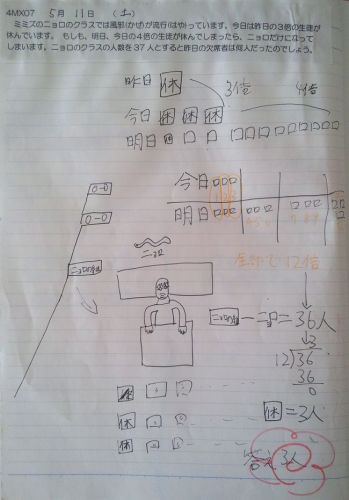 4MX07 5月11日 (土)
ミミズのニョロのクラスでは風邪(かぜ)が流行(はや)っています。今日は昨日の3倍の生徒が
休んでいます。もしも、明日、今日の4倍の生徒が休んでしまったら、ニョロだけになって
しまいます。ニョロのクラスの人数を37人とすると昨日の欠席者は何人だったのでしょう。
昨日 休
3倍 4倍
今日 休 休 休
明日 休
今日
明日
全部で12倍
ニョロ
ニョロ=36人
3
12)36
36
0
休=3人
休
休
答え 3人